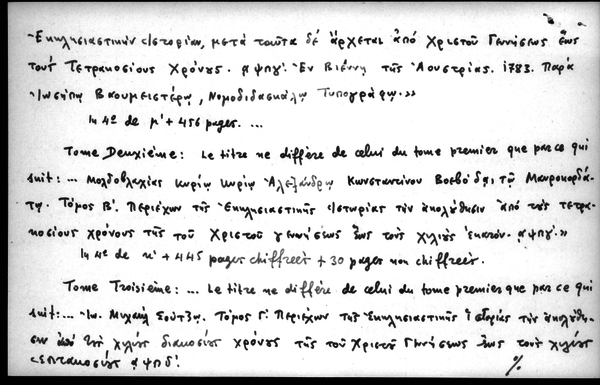 Ἐκκλησιαστικὴν Ἱστορίαν, μετὰ ταῦτα δὲ ἄρχεται ἀπὸ Χριστοῦ Γεννήσεως ἕως
τοὺς Τετρακοσίους Χρόνους. ͵αψπγʹ. Ἐν Βιέννῃ τῆς Ἀουστρίας. 1783. Παρὰ
Ἰωσήπῳ Βαουμειστέρῳ, Νομοδιδασκάλῳ Τυπογράφῳ.»
In 4º de μʹ + 456 pages. ...
Tome Deuxième: Le titre ne diffère de celui du tome premier que par ce qui
suit: ... Μολδοβλαχίας κυρίῳ κυρίῳ Ἀλεξάνδρῳ Κωνσταντίνου Βοεβόδᾳ τῷ Μαυροκορδά-
τῳ. Τόμος Βʹ. Περιέχων τῆς Ἐκκλησιαστικῆς Ἱστορίας τὴν ἀκολύθησιν ἀπὸ τοὺς τετρα-
κοσίους χρόνους τῆς τοῦ Χριστοῦ γεννήσεως ἕως τοὺς χιλίους ἑκατόν. ͵αψπγʹ.»
In 4º de κʹ + 445 pages chiffreés + 30 pages non chiffreés.
Tome Troisième: ... Le titre ne diffère de celui du tome premier que par ce qui
suit: ... Ἰω. Μιχαὴλ Σούτζῳ. Τόμος Γʹ Περιέχων τῆς Ἐκκλησιαστικῆς Ἱστορίας τὴν ἀκολύθη-
σιν ἀπὸ τοὺς χιλίους διακοσίους χρόνους τῆς τοῦ Χριστοῦ Γεννήσεως ἕως τοὺς χιλίους
ἑπτακοσίους ͵αψπδʹ.
%